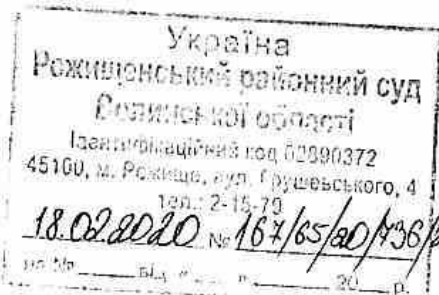 Україна
Рожищенський районний суд
Волинської області
Ідентифікаційний код 02890372
45100, м. Рожище, вул. Грушевського, 4
тел.: 2-15-79
18.02.2020 № 167/65/20/736/2
на № від " " 20 р.